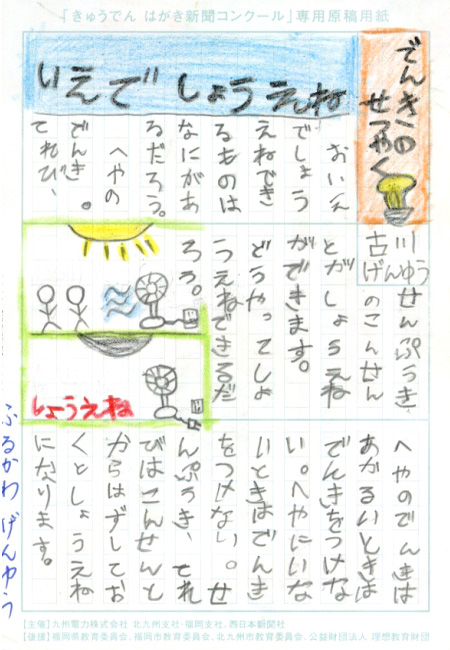 「きゅうでん はがき新聞コンクール」専用原稿用紙
でんきの
せつやく
いえで しょうえね
古川
げんゆう
おいえ
でしょう
えねでき
るものは
なにがあ
るだろう。
へやの
でんき。
てれび、
せんぷうき
のこんせん
とがしょうえね
ができます。
どうやってしょ
うえねできるだ
ろう。
しょうえね
へやのでんきは
あかるいときは
でんきをつけな
い。へやにいな
いときはでんき
をつけない。せ
んぷうき、てれ
びはこんせんと
からはずしてお
くとしょうえね
になります。
ふるかわ げんゆう
【主催】九州電力株式会社 北九州支社・福岡支社、西日本新聞社
【後援】福岡県教育委員会、福岡市教育委員会、北九州市教育委員会、公益財団法人 理想教育財団